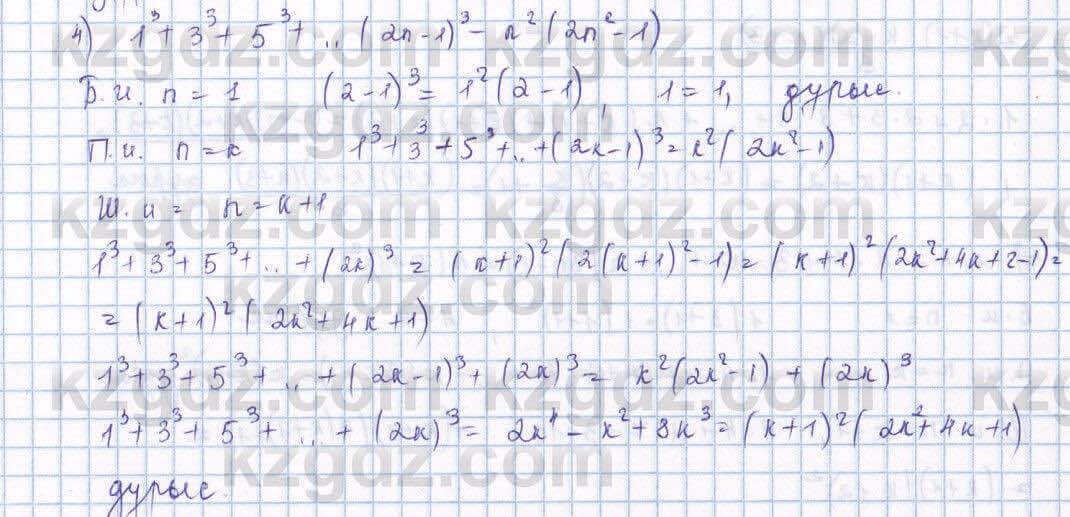 4) 1³ + 3³ + 5³ + .. (2n-1)³ - n² (2n² - 1)
Б.и. n = 1 (2-1)³ = 1² (2-1), 1 = 1, дұрыс.
П.и. n = к 1³ + 3³ + 5³ + .. + (2к-1)³ = к² (2к² - 1)
Ш.и = n = к+1
1³ + 3³ + 5³ + .. + (2к)³ = (к+1)² (2(к+1)² - 1) = (к+1)² (2к² + 4к + 2 - 1) =
= (к+1)² (2к² + 4к + 1)
1³ + 3³ + 5³ + .. + (2к-1)³ + (2к)³ = к² (2к² - 1) + (2к)³
1³ + 3³ + 5³ + .. + (2к)³ = 2к⁴ - к² + 8к³ = (к+1)² (2к² + 4к + 1)
дұрыс.
kzgdz.com